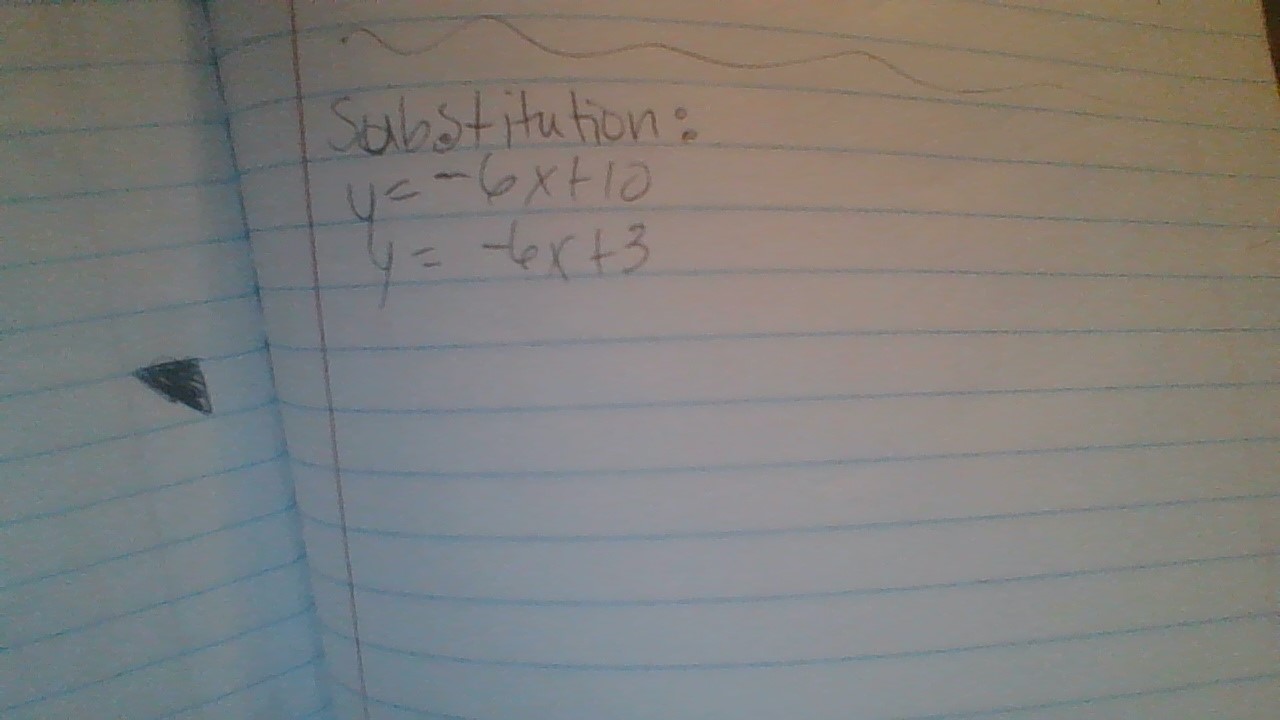 Substitution:
y = -6x+10
y = -6x+3